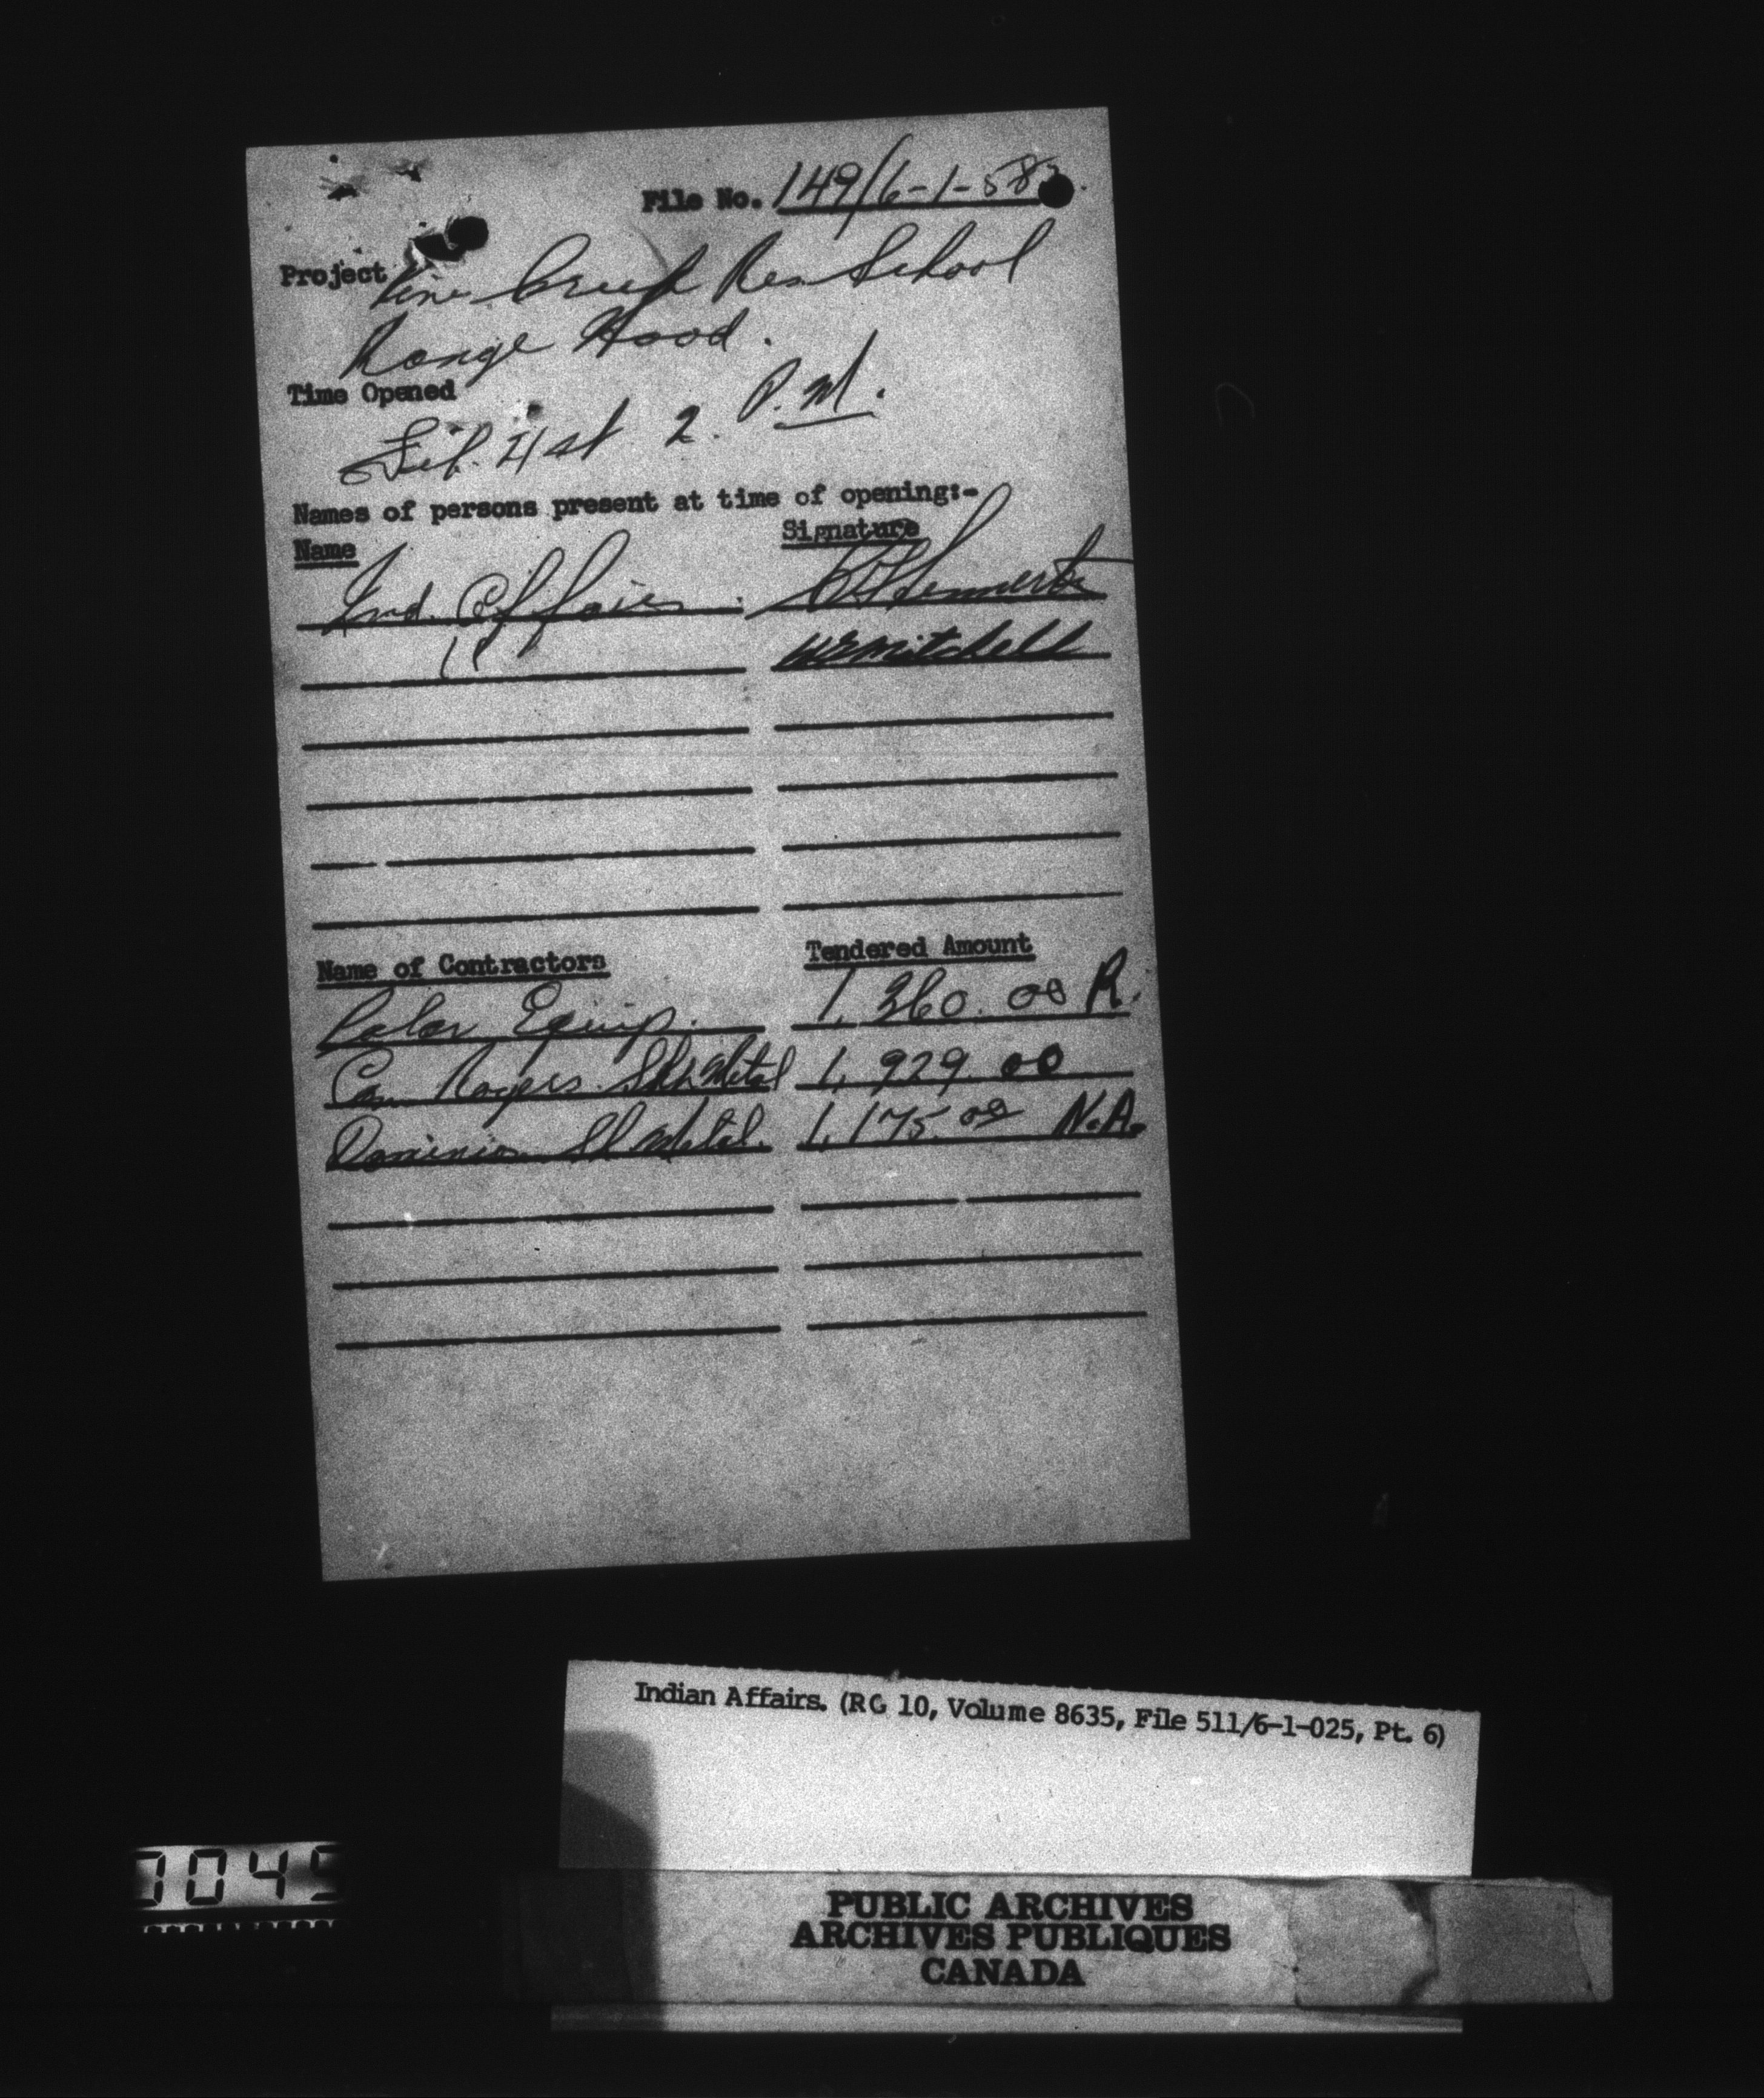 File No. 149/6-1-583.
Project Pine Creek Res School
Range Hood.
Time Opened
2. P.M.
Names of persons present at time of opening:-
Name Signature
Ind. Affairs.
" WEMitchell
Name of Contractors Tendered Amount
Polar Equip. 1,360.00 R.
Can Rogers Sht Metal 1,929.00
Dominion Sh Metal. 1,175.00 N.A.
Indian Affairs. (RG 10, Volume 8635, File 511/6-1-025, Pt. 6)
7045
PUBLIC ARCHIVES
ARCHIVES PUBLIQUES
CANADA